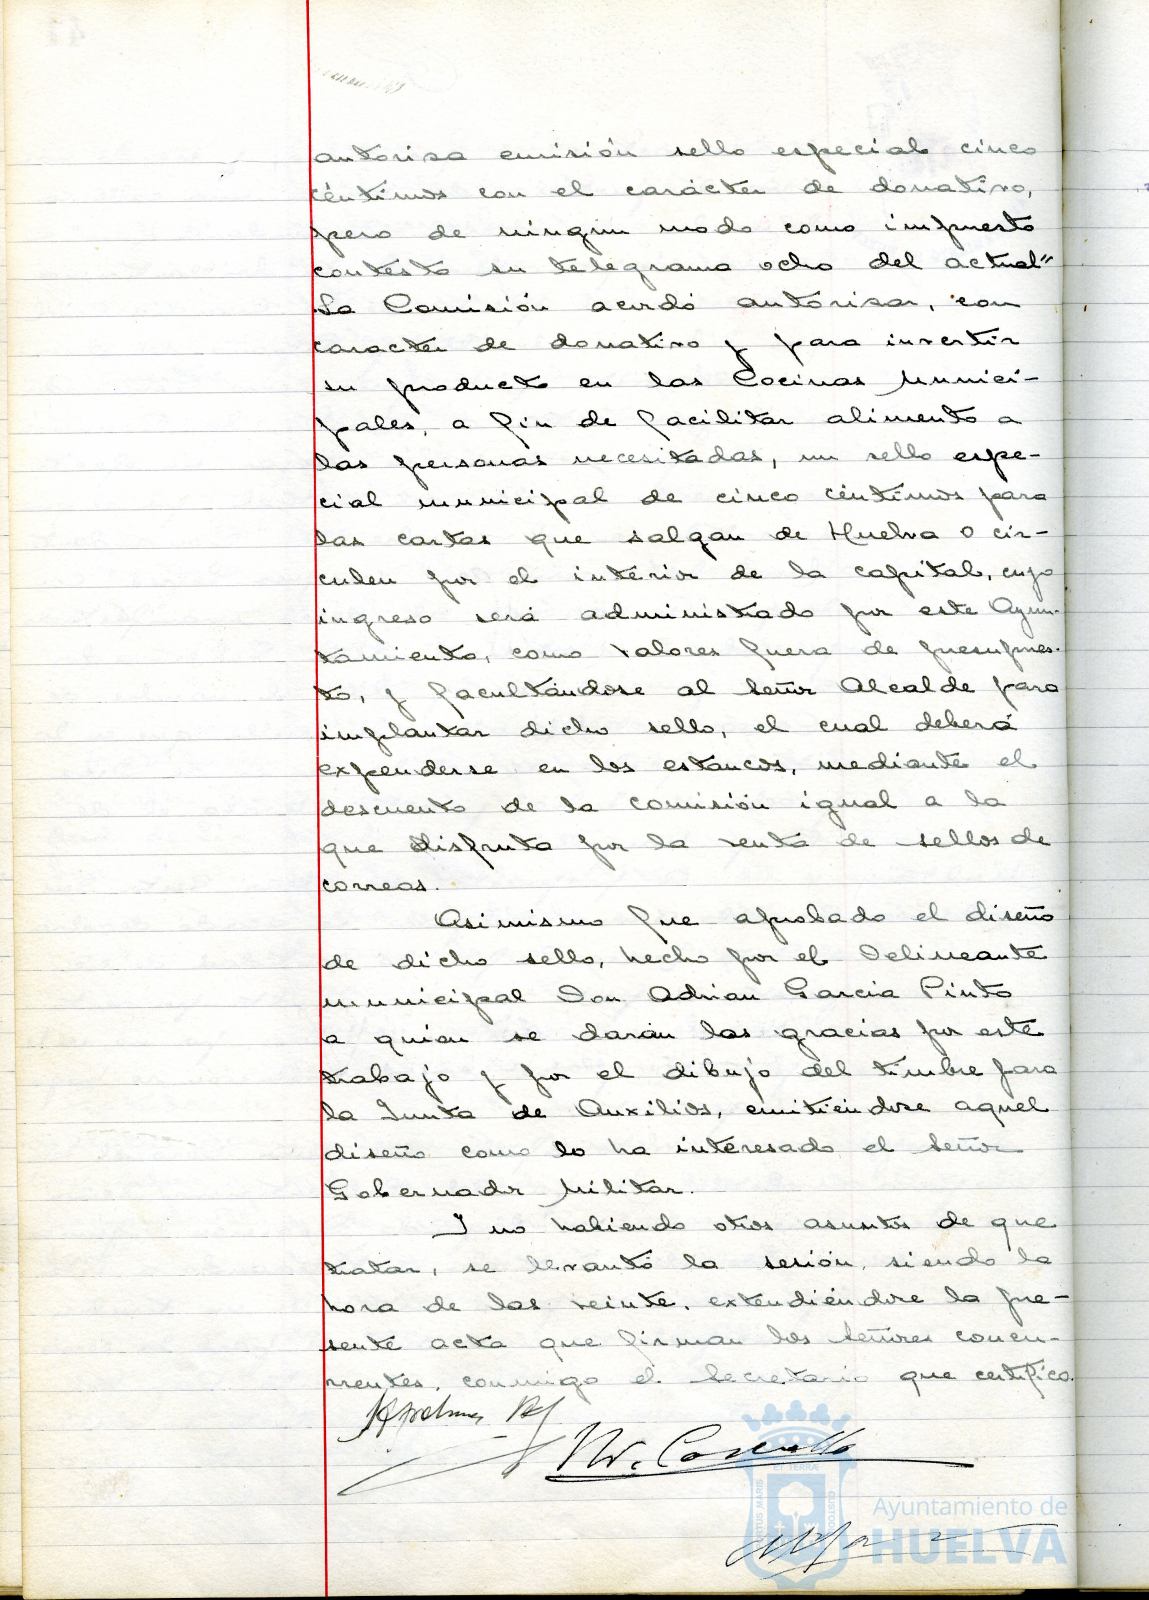 autorisa emisión sello especial cinco
céntimos con el carácter de donativo,
pero de ningún modo como impuesto
contesto su telegrama ocho del actual"
La Comisión acordó autorisar, con
caracter de donativo y para invertir
su producto en las Cocinas Munici-
pales, a fin de facilitar alimento a
las personas necesitadas, un sello espe-
cial municipal de cinco céntimos para
las cartas que salgan de Huelva o cir-
culen por el interior de la capital, cuyo
ingreso será administrado por este Ayun-
tamiento, como valores fuera de presupues-
to, y facultándose al Señor Alcalde para
implantar dicho sello, el cual deberá
expenderse en los estancos, mediante el
descuento de la comisión igual a la
que disfruta por la venta de sellos de
correos.
Asimismo fue aprobado el diseño
de dicho sello, hecho por el Delineante
municipal Don Adrian Garcia Pinto
a quien se darán las gracias por este
trabajo y por el dibujo del timbre para
la Junta de Auxilios, emitiéndose aquel
diseño como lo ha interesado el Señor
Gobernador Militar.
Y no habiendo otros asuntos de que
tratar, se levantó la sesión, siendo la
hora de las veinte, extendiéndose la pre-
sente acta que firman los Señores concu-
rrentes, conmigo el Secretario que certifico.
Ayuntamiento de
HUELVA